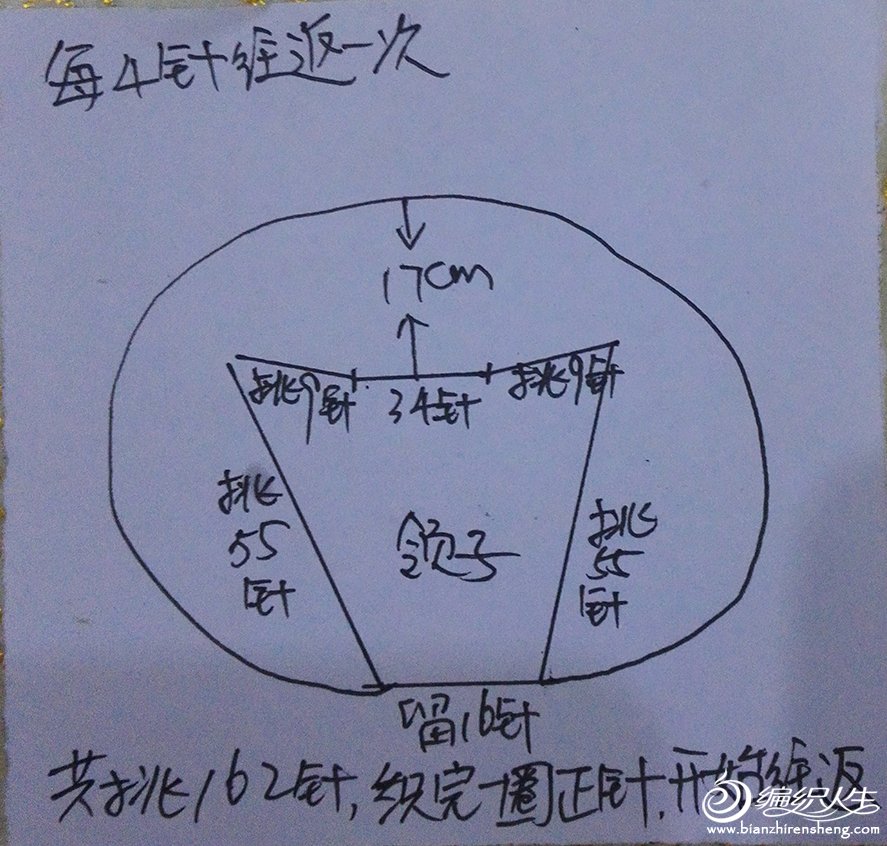 每4针经返一次
17cm
挑9针
34针
挑9针
挑
55
针
领子
挑
55
针
留16针
共挑162针,织完一圈正针,开始经返
编织人生
www.bianzhirensheng.com